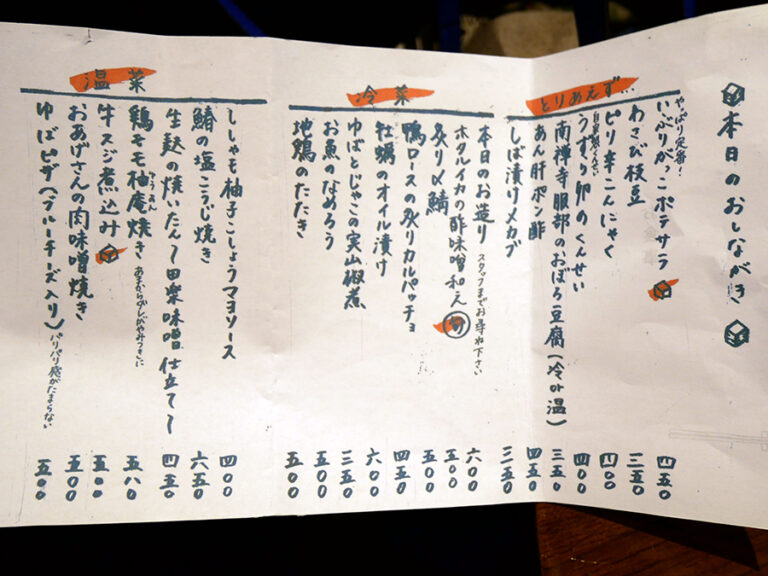 本日のおしながき
とりあえず…
やっぱり定番!
いぶりがっこポテサラ 四五〇
わさび枝豆 三五〇
ピリ辛こんにゃく 四〇〇
うずら卵のくんせい 四〇〇
南禅寺服部のおぼろ豆腐(冷or温) 三五〇
あん肝ポン酢 四五〇
しば漬けメカブ 三五〇
冷菜
本日のお造り スタッフまでお尋ね下さい 六〇〇
ホタルイカの酢味噌和え 五〇〇
炙り〆鯖 五〇〇
鴨ロースの炙りカルパッチョ 四五〇
牡蠣のオイル漬け 六〇〇
ゆばとじゃこの実山椒煮 三五〇
お魚のなめろう 五〇〇
地鶏のたたき 五〇〇
温菜
ししゃも柚子こしょうマヨソース 四〇〇
鰆の塩こうじ焼き 六五〇
生麩の焼いたん〜田楽味噌仕立て〜 四五〇
鶏モモ柚庵焼き 五八〇
ゆうあん
牛スジ煮込み 五〇〇
おあげさんの肉味噌焼き 五〇〇
ゆばピザ(ブルーチーズ入り)パリパリ感がたまらない 五〇〇